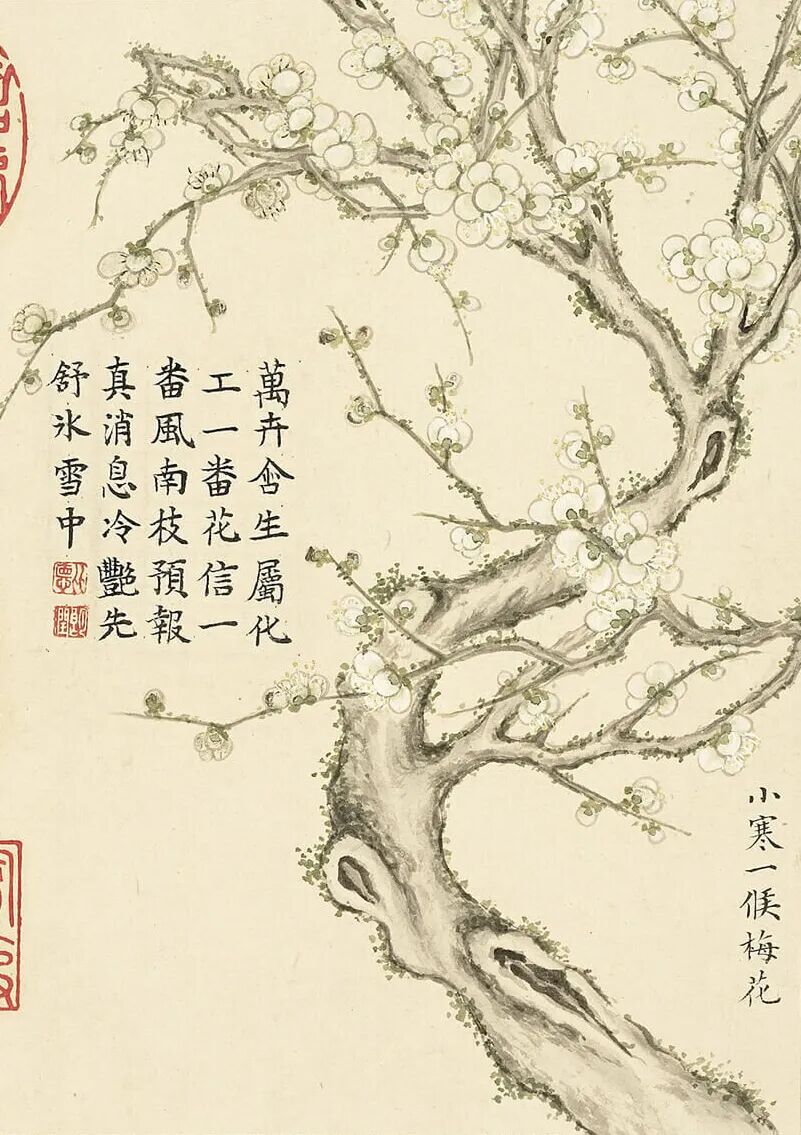 小寒一候梅花
萬卉含生屬化
工一番花信一
番風南枝預報
真消息冷艷先
舒氷雪中